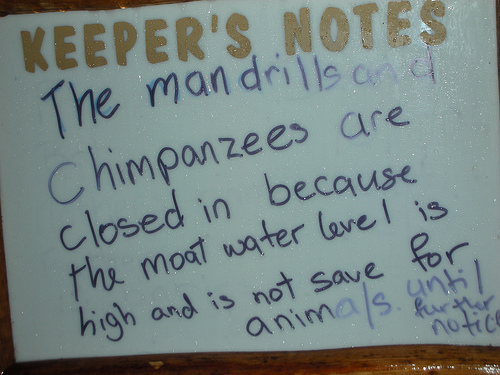 KEEPER'S NOTES
The mandrills and
Chimpanzees are
closed in because
the moat water level is
high and is not save for
animals. until
further
notice